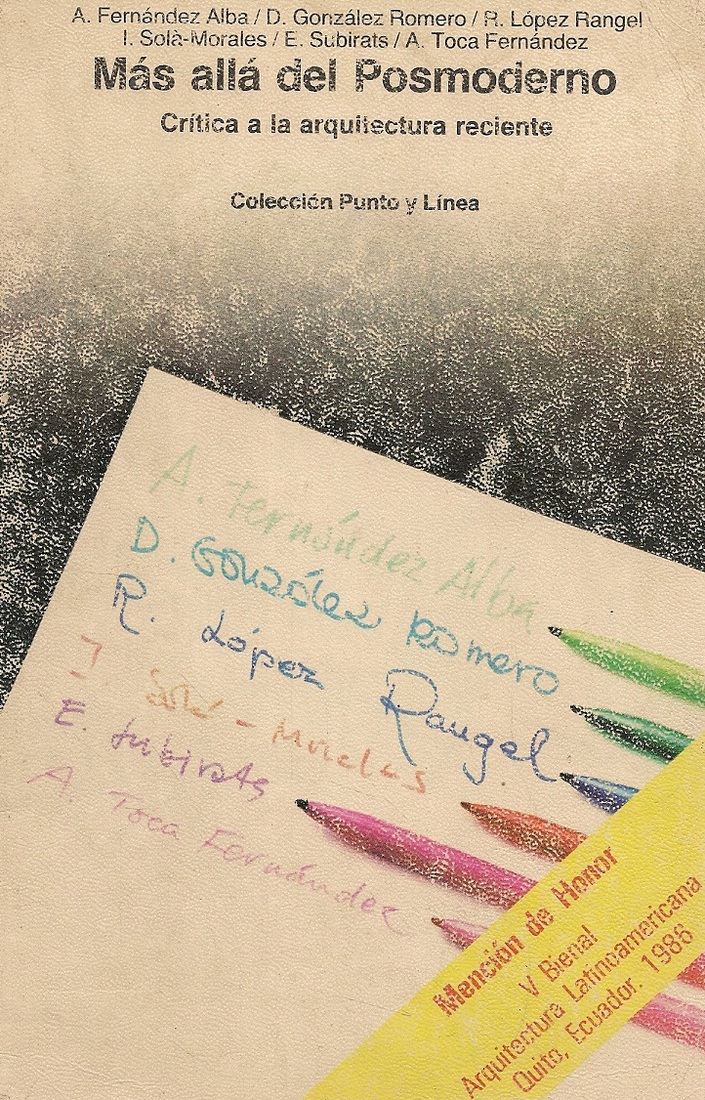 A. Fernández Alba / D. González Romero / R. López Rangel
I. Solà-Morales / E. Subirats / A. Toca Fernández
Más allá del Posmoderno
Crítica a la arquitectura reciente
Colección Punto y Línea
A. Fernández Alba
D. González Romero
R. López Rangel
I. Solá - Morales
E. Subirats
A. Toca Fernández
Mención de Honor
V Bienal
Arquitectura Latinoamericana
Quito, Ecuador. 1986